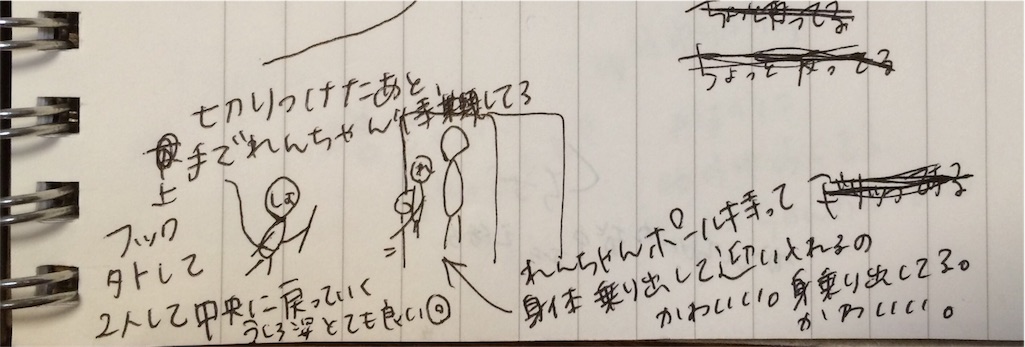 切りつけたあと
手でれんちゃん
してる
上
フック
外して
2人して中央に戻っていく
うしろ姿とても良い◎
しお
れ
れんちゃんポール持って
身体乗り出して迎いれるの
かわいい。身乗り出してる。
かわいい。
ちょっと
ってる
ちょっと
ってる